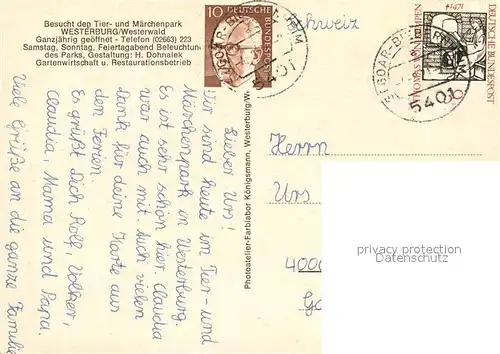 Besucht den Tier- und Märchenpark
WESTERBURG/Westerwald
Ganzjährig geöffnet - Telefon (02663) 223
Samstag, Sonntag, Feiertagabend Beleuchtun
des Parks, Gestaltung: H. Dohnalek
Gartenwirtschaft u. Restaurationsbetrieb
Lieber Urs!
Wir sind heute im Tier- und
Märchenpark in Westerburg.
Es ist sehr schön hier. Claudia
war auch mit. Auch vielen
Dank für deine Karte aus
den Ferien.
Es grüßt Dich Rolf, Volker,
Claudia, Mama und Papa.
Viele Grüße an die ganze Familie
Photoatelier-Farblabor Königsmann, Westerburg/We
10
DEUTSCHE BUNDES
5401
Schweiz
DEUTSCHE BUNDESPOST
THOMAS VON KEMPEN
† 1471
5401
Herrn
Urs
400
privacy protection
Datenschutz